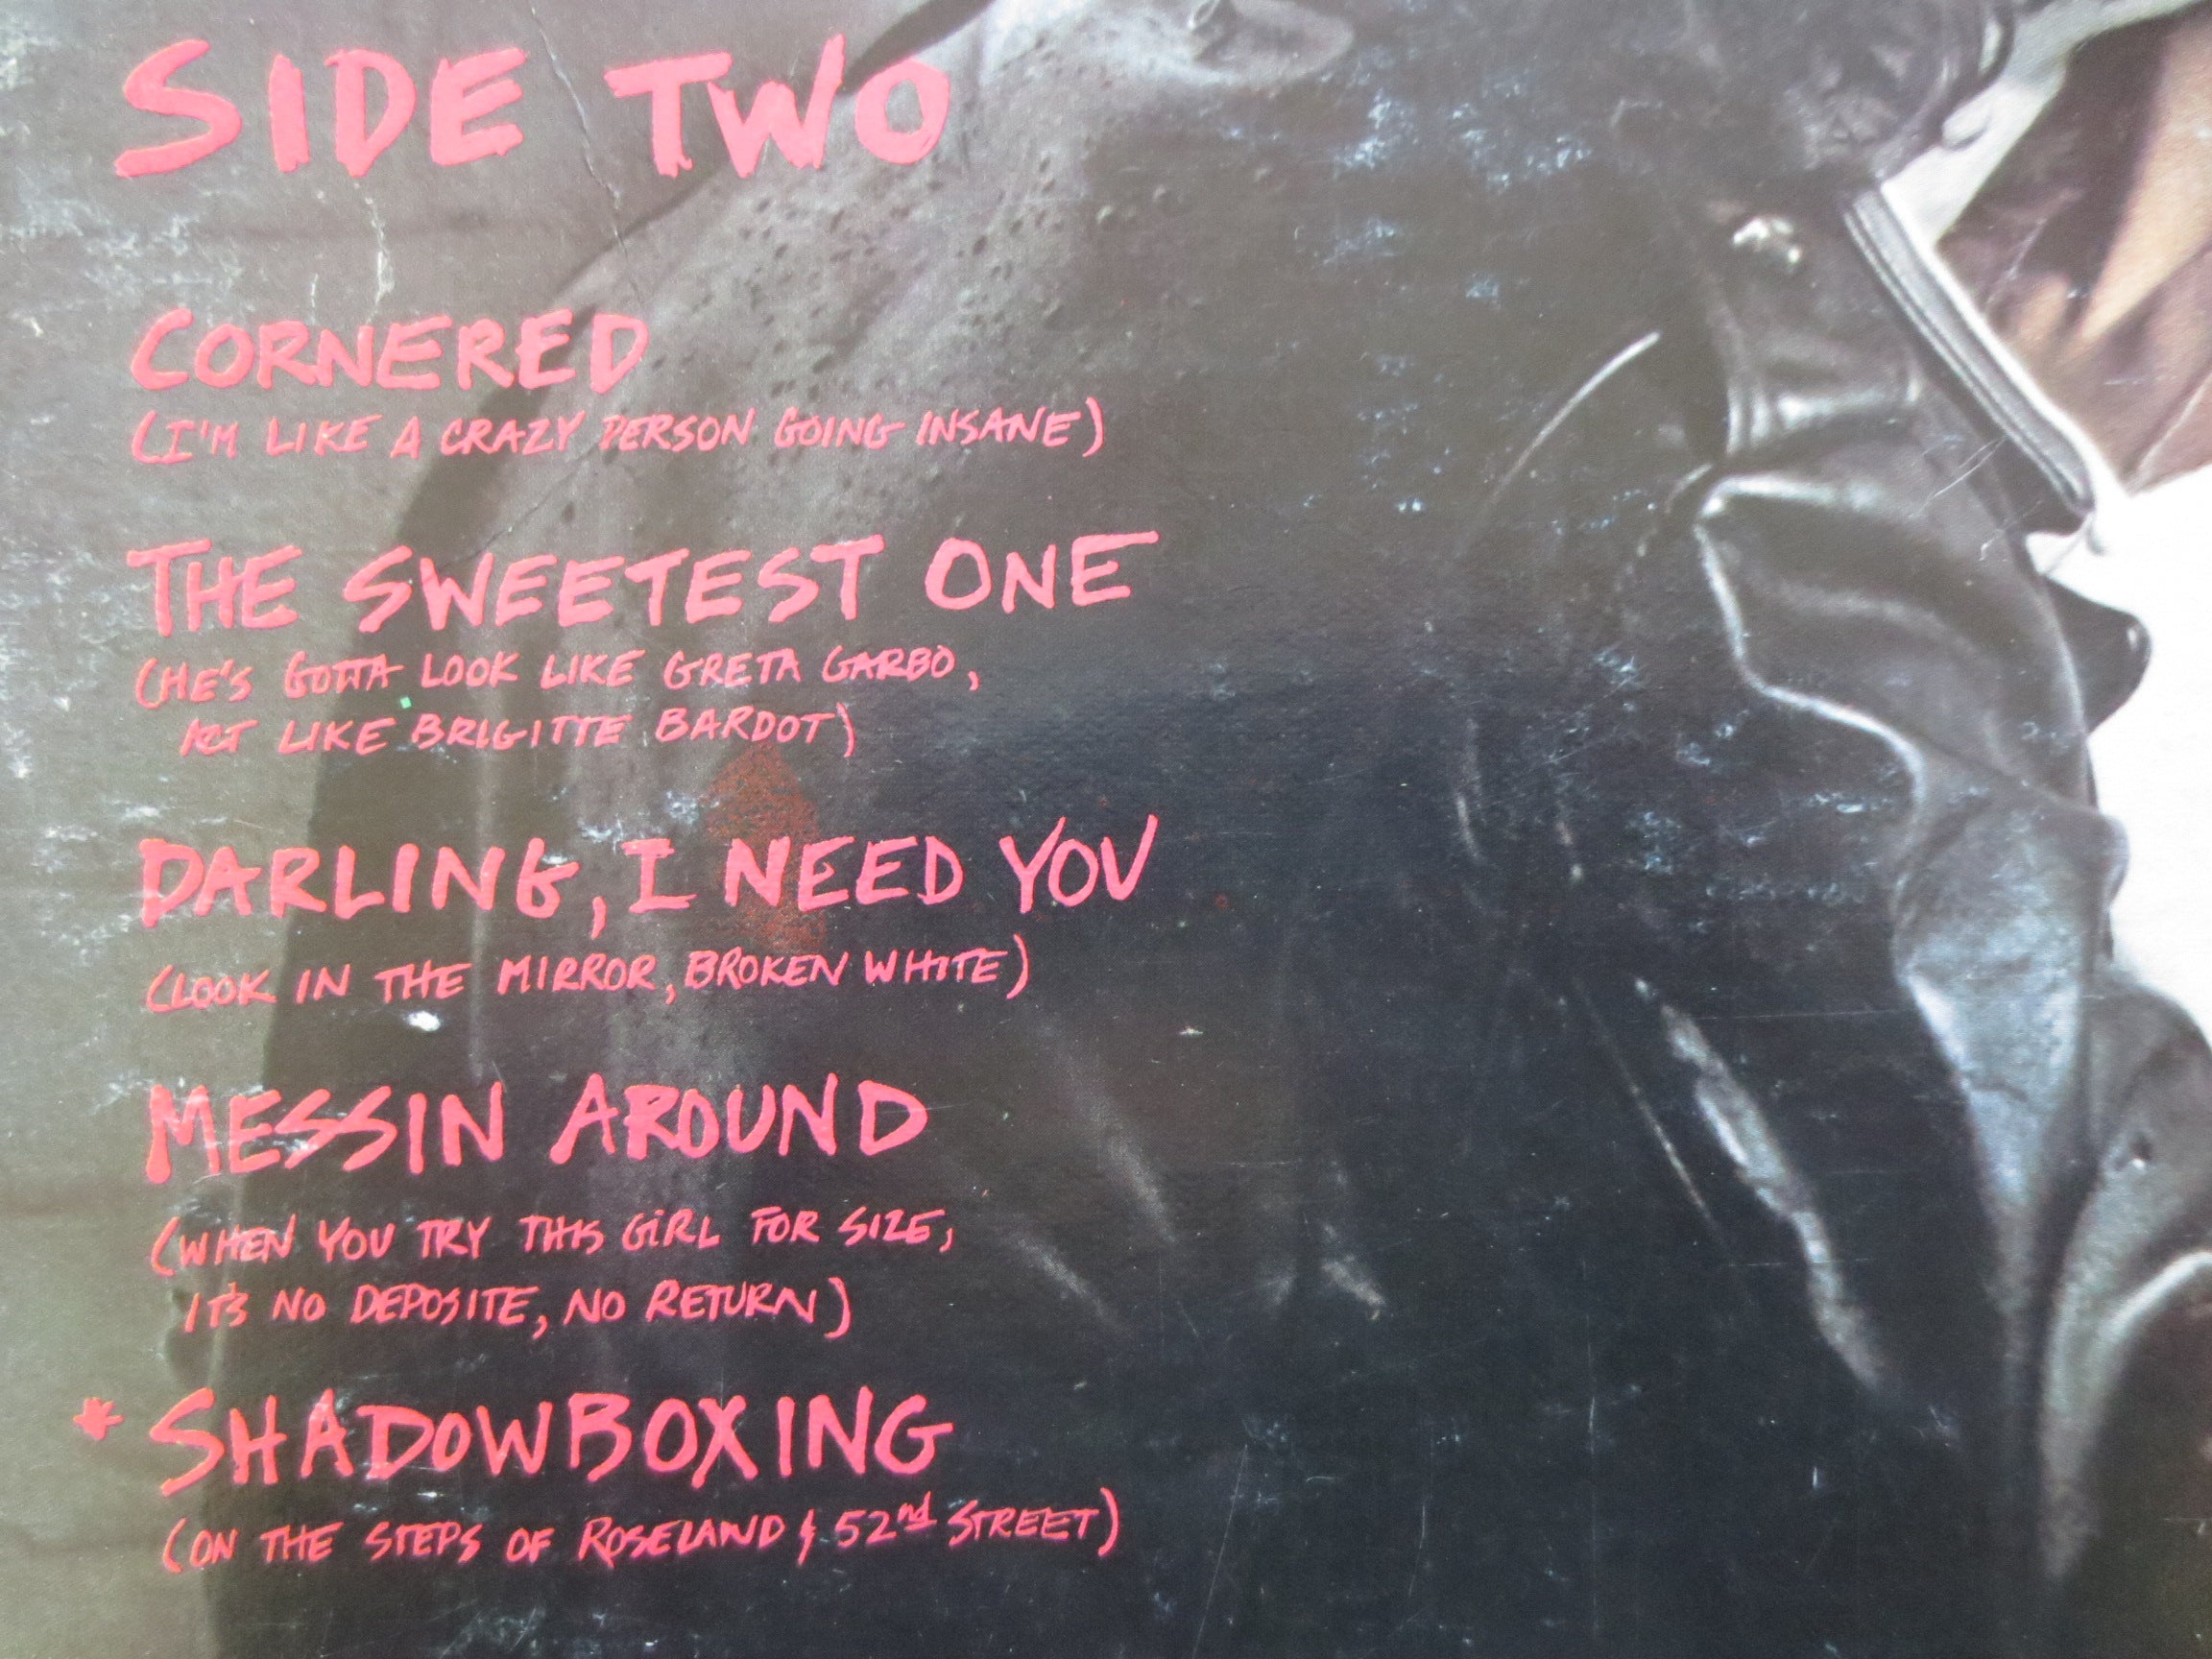 SIDE TWO
CORNERED
(I'M LIKE A CRAZY PERSON GOING INSANE)
THE SWEETEST ONE
(HE'S GOTTA LOOK LIKE GRETA GARBO,
ACT LIKE BRIGITTE BARDOT)
DARLING, I NEED YOU
(LOOK IN THE MIRROR, BROKEN WHITE)
MESSIN AROUND
(WHEN YOU TRY THIS GIRL FOR SIZE,
IT'S NO DEPOSITE, NO RETURN)
* SHADOWBOXING
(ON THE STEPS OF ROSELAND & 52nd STREET)